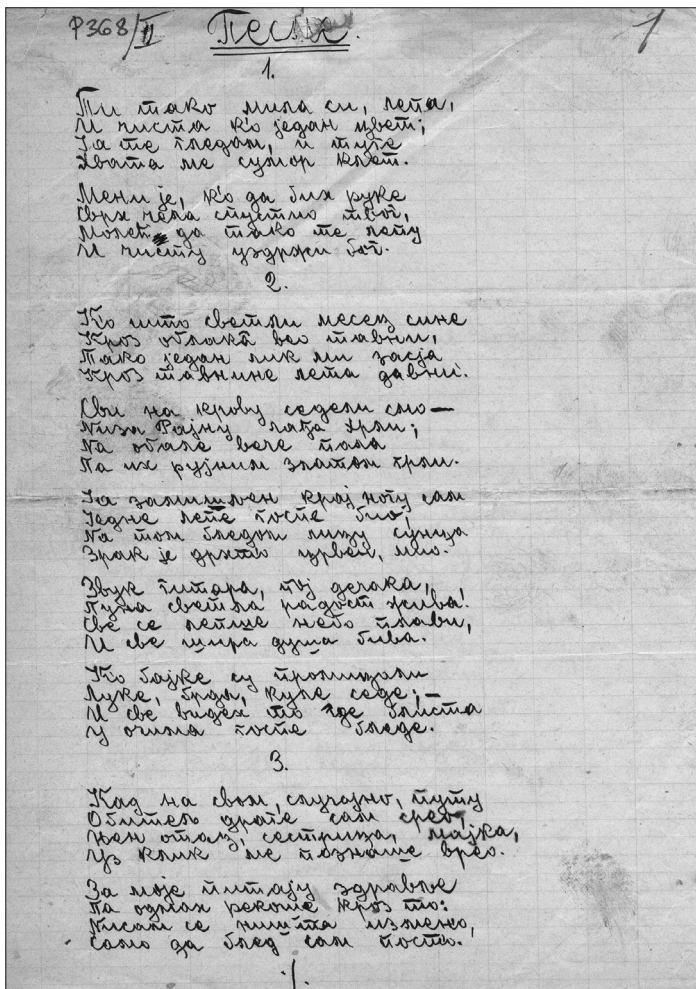 Р368/II Песме. 1
1.
Ти тако мила си, лепа,
И чиста к'о један цвет;
Ја те гледам, и туге
Хвата ме сумор клет.
Мени је, к'о да бих руке
Сврх чела спустио твог,
Молећ да тако те лепу
И чисту уздржи бог.
2.
Ко што светли месец сине
Кроз облака вео тавни,
Тако један лик ми засја
Кроз тавнине лета давни'.
Сви на крову седели смо—
Низа Рајну лађа хрли;
На обале вече пала
Па их рујним златом грли.
Ја замишљен крај ногу сам
Једне лепе госпе био,
На том бледом лицу сунца
Зрак је дрхт'о црвен, мио.
Звук гитара, пој дечака,
Пуна светла радост жива!
Све се лепше небо плави,
И све шира душа бива.
Ко бајке су промицали
Луке, брда, куле седе;—
И све видех то где блиста
У очима госпе бледе.
3.
Кад на свом, случајно, путу
Обитељ драге сам срео,
Њен отац, сестрица, мајка,
Уз клик ме познаше врео.
За моје питају здравље
Па одмах рекоше кроз то:
Нисам се ништа измено,
Само да блед сам посто.
./.